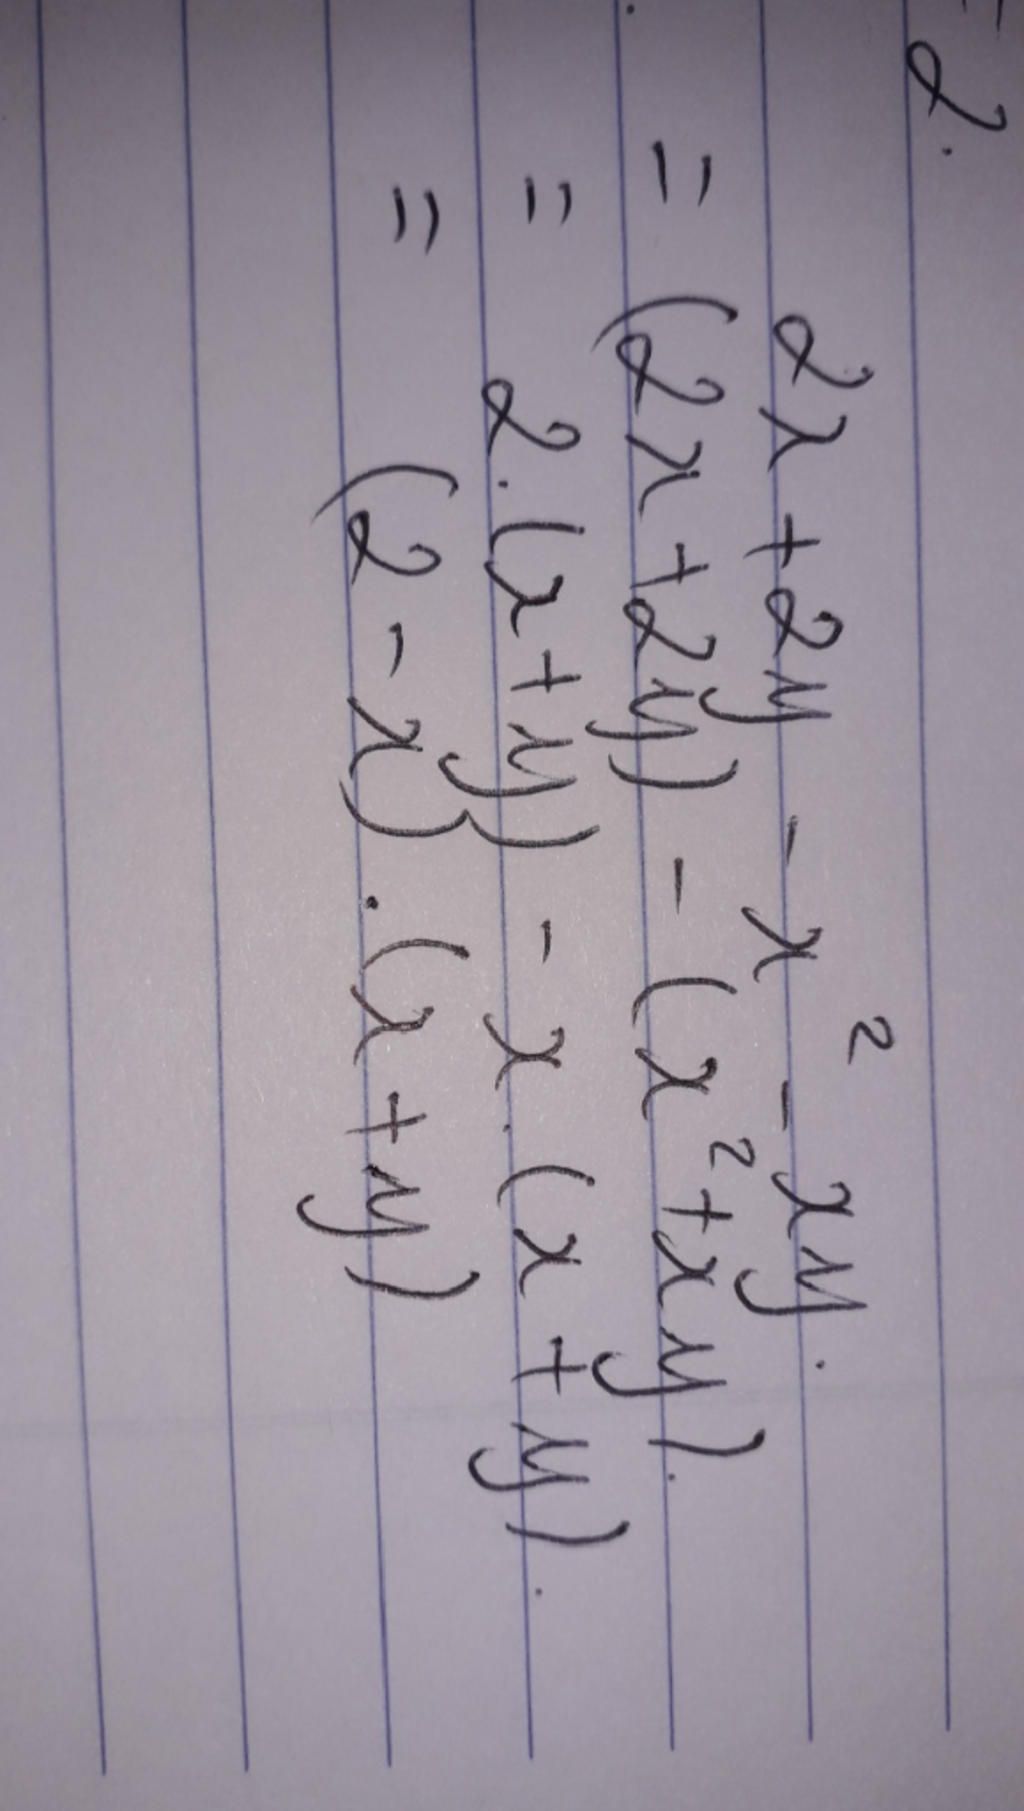 2.
2x + 2y - x² - xy.
= (2x + 2y) - (x² + xy).
= 2.(x + y) - x.(x + y).
= (2 - x).(x + y)